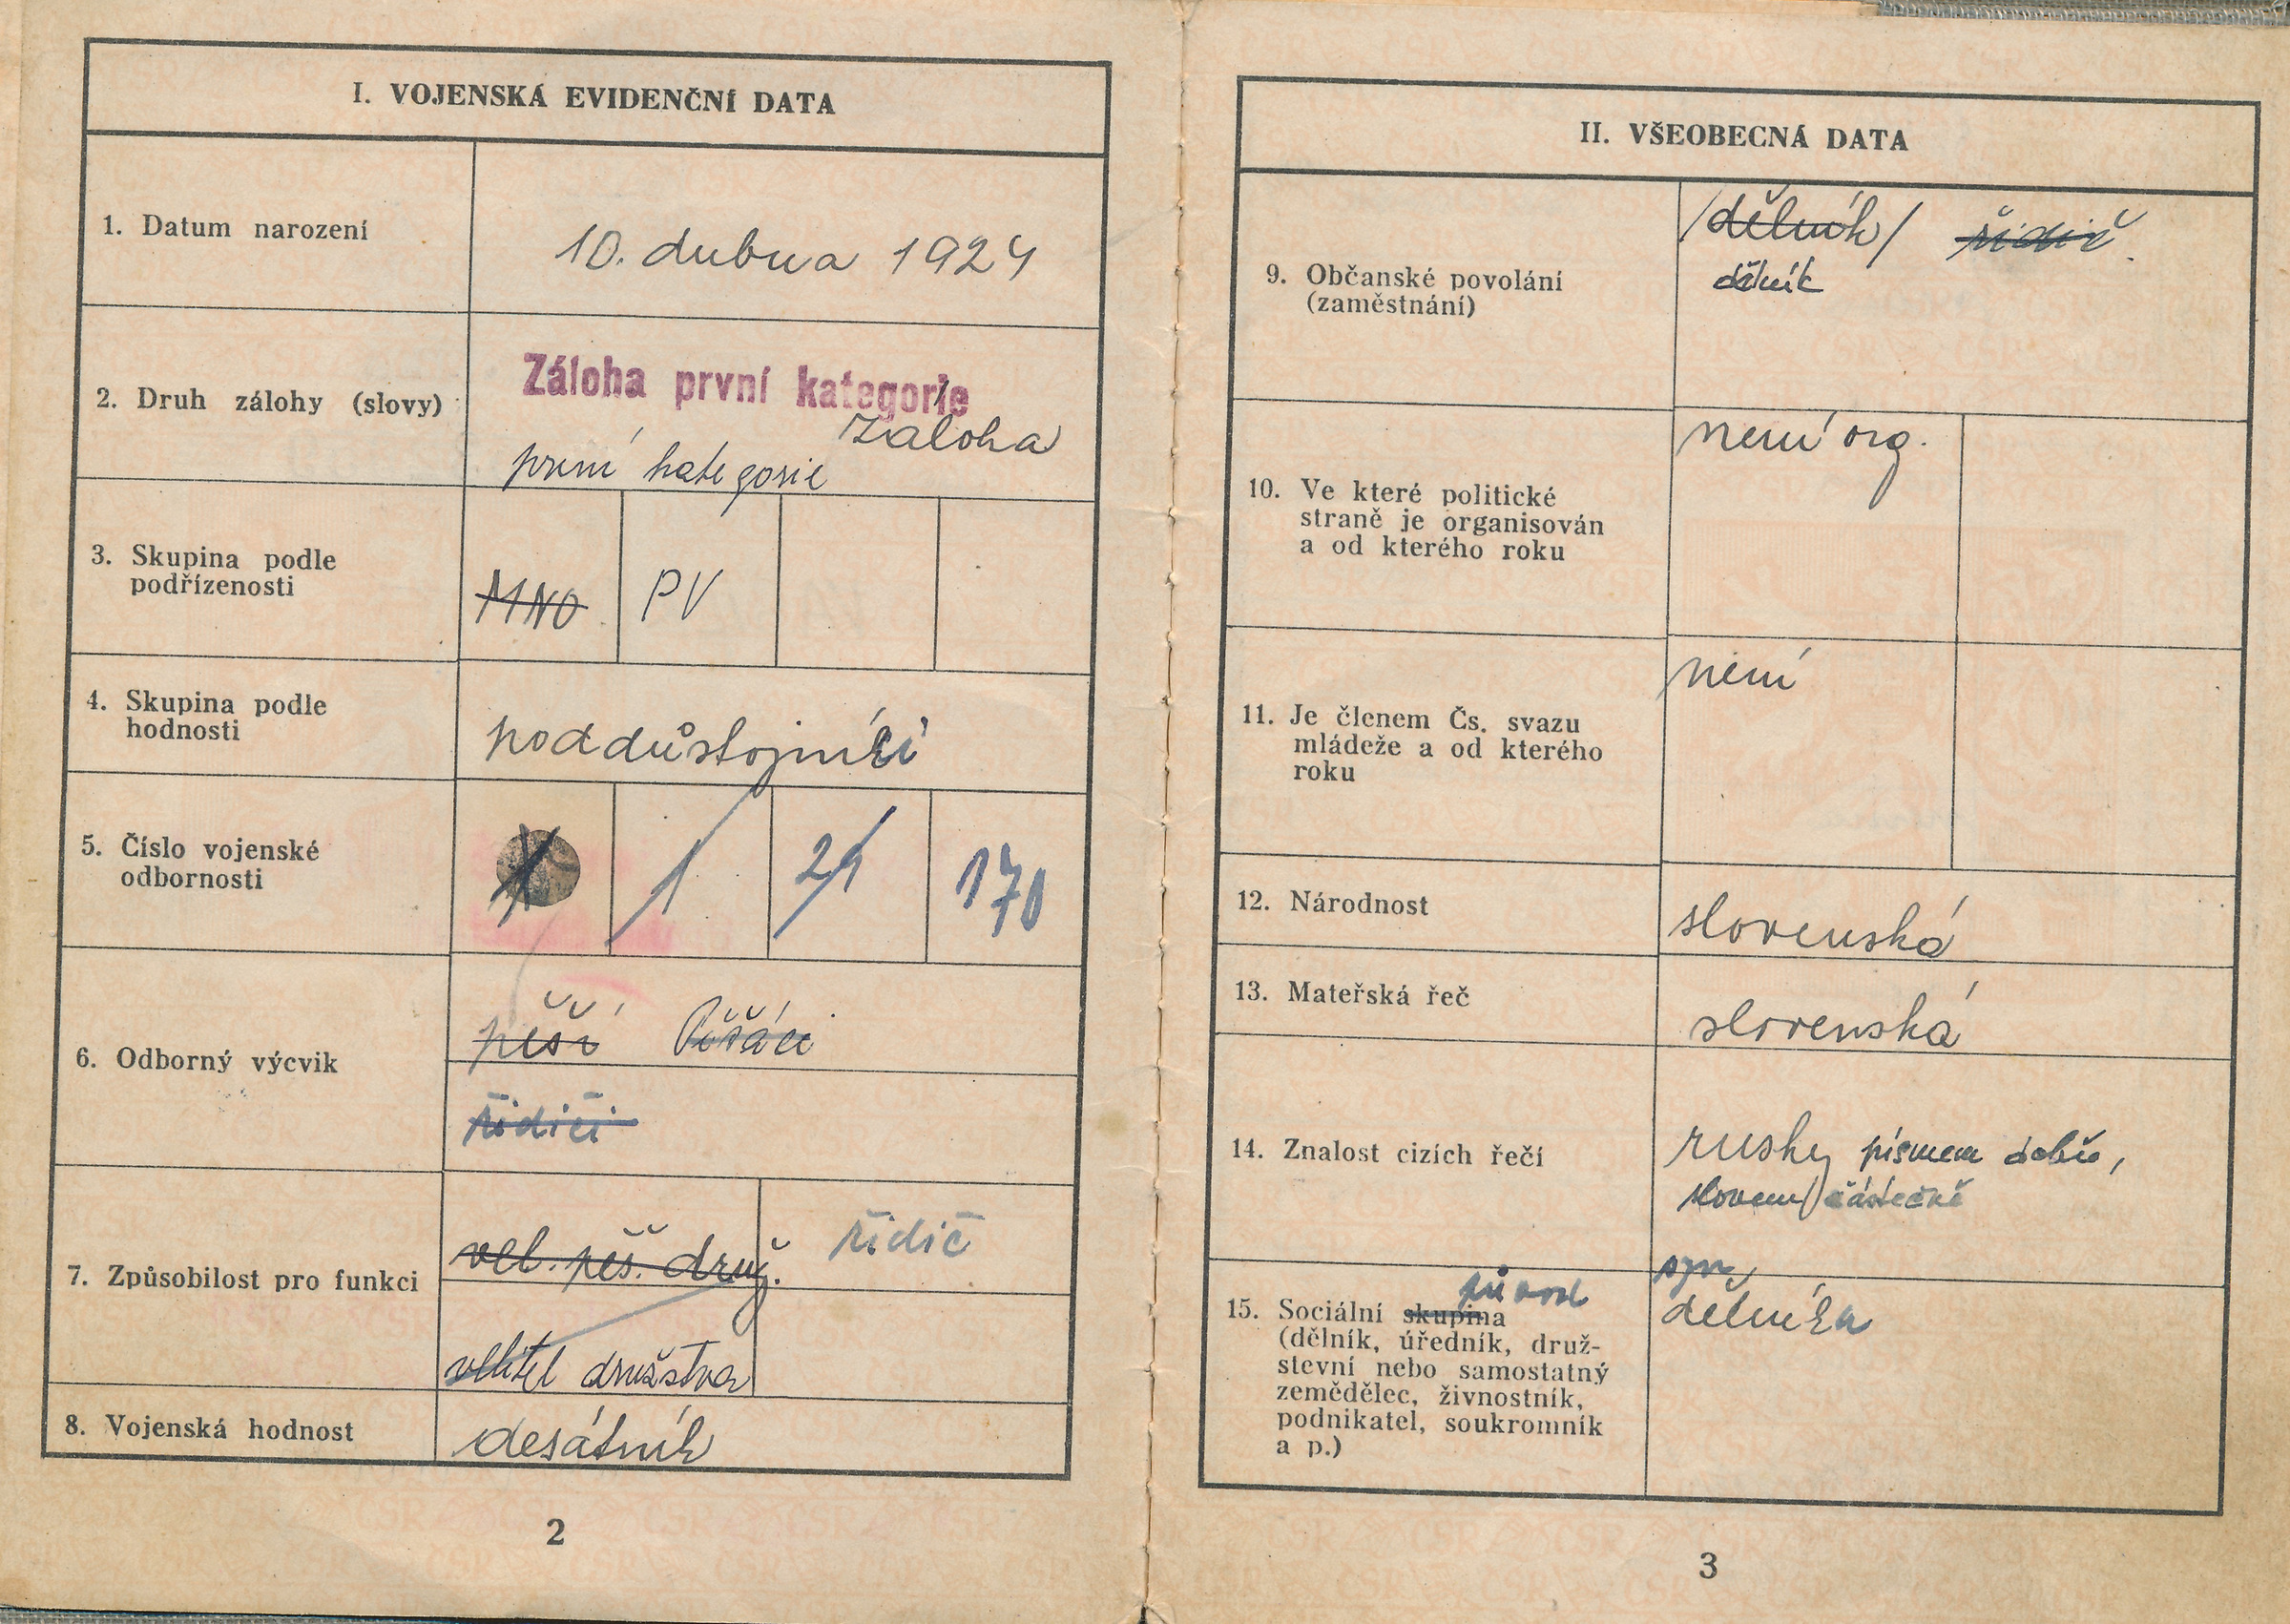 I. VOJENSKÁ EVIDENČNÍ DATA
1. Datum narození
10. dubna 1924
2. Druh zálohy (slovy)
Záloha první kategorie
Záloha
první kategorie
3. Skupina podle
podřízenosti
MNO
PV
4. Skupina podle
hodnosti
poddůstojníci
5. Číslo vojenské
odbornosti
1
21
170
6. Odborný výcvik
pěší
řidiči
7. Způsobilost pro funkci
vel. pěš. druž.
řidič
velitel družstva
8. Vojenská hodnost
desátník
2
II. VŠEOBECNÁ DATA
9. Občanské povolání
(zaměstnání)
/dělník/ řidič
dělník
10. Ve které politické
straně je organisován
a od kterého roku
není org.
11. Je členem Čs. svazu
mládeže a od kterého
roku
není
12. Národnost
slovenská
13. Mateřská řeč
slovenská
14. Znalost cizích řečí
rusky písmem dobře,
slovem částečně
15. Sociální skupina
původ
(dělník, úředník, druž-
stevní nebo samostatný
zemědělec, živnostník,
podnikatel, soukromník
a p.)
syn
dělníka
3